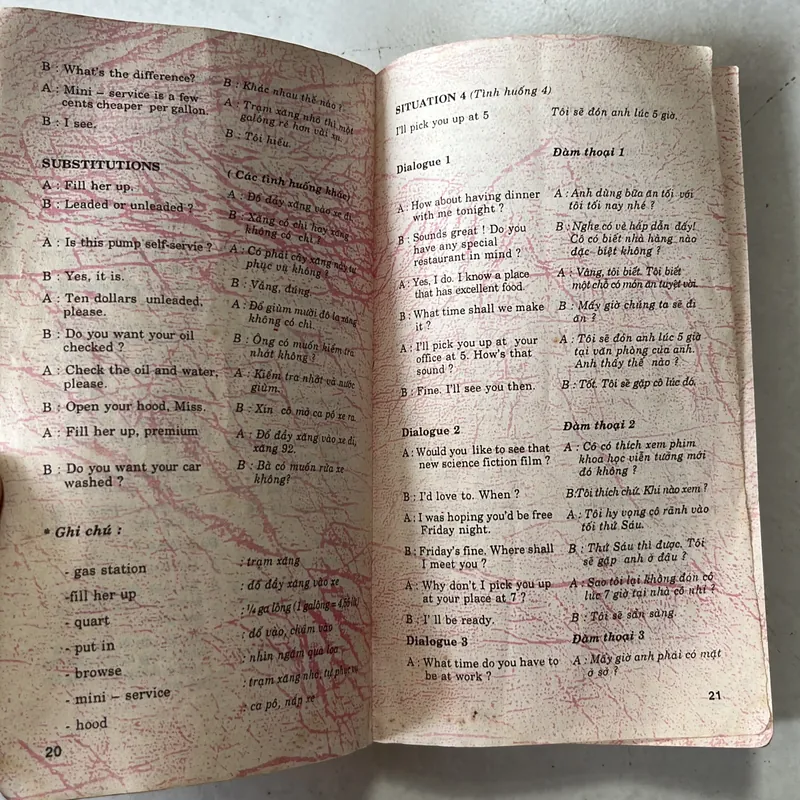 B : What's the difference?
A : Mini – service is a few
cents cheaper per gallon.
B : I see.
B : Khác nhau thế nào ?
A : Trạm xăng nhỏ thì một
galông rẻ hơn vài xu.
B : Tôi hiểu.
SUBSTITUTIONS
( Các tình huống khác)
A : Fill her up.
A : Đổ đầy xăng vào xe đi.
B : Leaded or unleaded ?
B : Xăng có chì hay xăng
không có chì ?
A : Is this pump self-servie ?
A : Có phải cây xăng này tự
phục vụ không ?
B : Yes, it is.
B : Vâng, đúng.
A : Ten dollars unleaded,
please.
A : Đổ giùm mười đô la xăng
không có chì.
B : Do you want your oil
checked ?
B : Ông có muốn kiểm tra
nhớt không ?
A : Check the oil and water,
please.
A : Kiểm tra nhớt và nước
giùm.
B : Open your hood, Miss.
B : Xin cô mở ca pô xe ra.
A : Fill her up, premium
A : Đổ đầy xăng vào xe đi,
xăng 92.
B : Do you want your car
washed ?
B : Bà có muốn rửa xe
không?
* Ghi chú :
- gas station : trạm xăng
-fill her up : đổ đầy xăng vào xe
- quart : ¼ ga lông (1 galông =
- put in : đổ vào, châm vào
- browse : nhìn ngắm qua loa
- mini – service : trạm xăng nhỏ, tự phục vụ
- hood : ca pô, nắp xe
20
SITUATION 4 (Tình huống 4)
I'll pick you up at 5
Tôi sẽ đón anh lúc 5 giờ.
Dialogue 1
Đàm thoại 1
A : How about having dinner
with me tonight ?
A : Anh dùng bữa ăn tối với
tôi tối nay nhé ?
B : Sounds great ! Do you
have any special
restaurant in mind ?
B : Nghe có vẻ hấp dẫn đấy!
Cô có biết nhà hàng nào
đặc biệt không ?
A : Yes, I do. I know a place
that has excellent food.
A : Vâng, tôi biết. Tôi biết
một chỗ có món ăn tuyệt vời.
B : What time shall we make
it ?
B : Mấy giờ chúng ta sẽ đi
ăn ?
A : I'll pick you up at your
office at 5. How's that
sound ?
A : Tôi sẽ đón anh lúc 5 giờ
tại văn phòng của anh.
Anh thấy thế nào ?
B : Fine. I'll see you then.
B : Tốt. Tôi sẽ gặp cô lúc đó.
Dialogue 2
Đàm thoại 2
A : Would you like to see that
new science fiction film ?
A : Cô có thích xem phim
khoa học viễn tưởng mới
đó không ?
B : I'd love to. When ?
B:Tôi thích chứ. Khi nào xem ?
A : I was hoping you'd be free
Friday night.
A : Tôi hy vọng cô rảnh vào
tối thứ Sáu.
B : Friday's fine. Where shall
I meet you ?
B : Thứ Sáu thì được. Tôi
sẽ gặp anh ở đâu ?
A : Why don't I pick you up
at your place at 7 ?
A : Sao tôi lại không đón cô
lúc 7 giờ tại nhà cô nhỉ ?
B : I' ll be ready.
B : Tôi sẽ sẵn sàng.
Dialogue 3
Đàm thoại 3
A : What time do you have to
be at work ?
A : Mấy giờ anh phải có mặt
ở sở ?
21